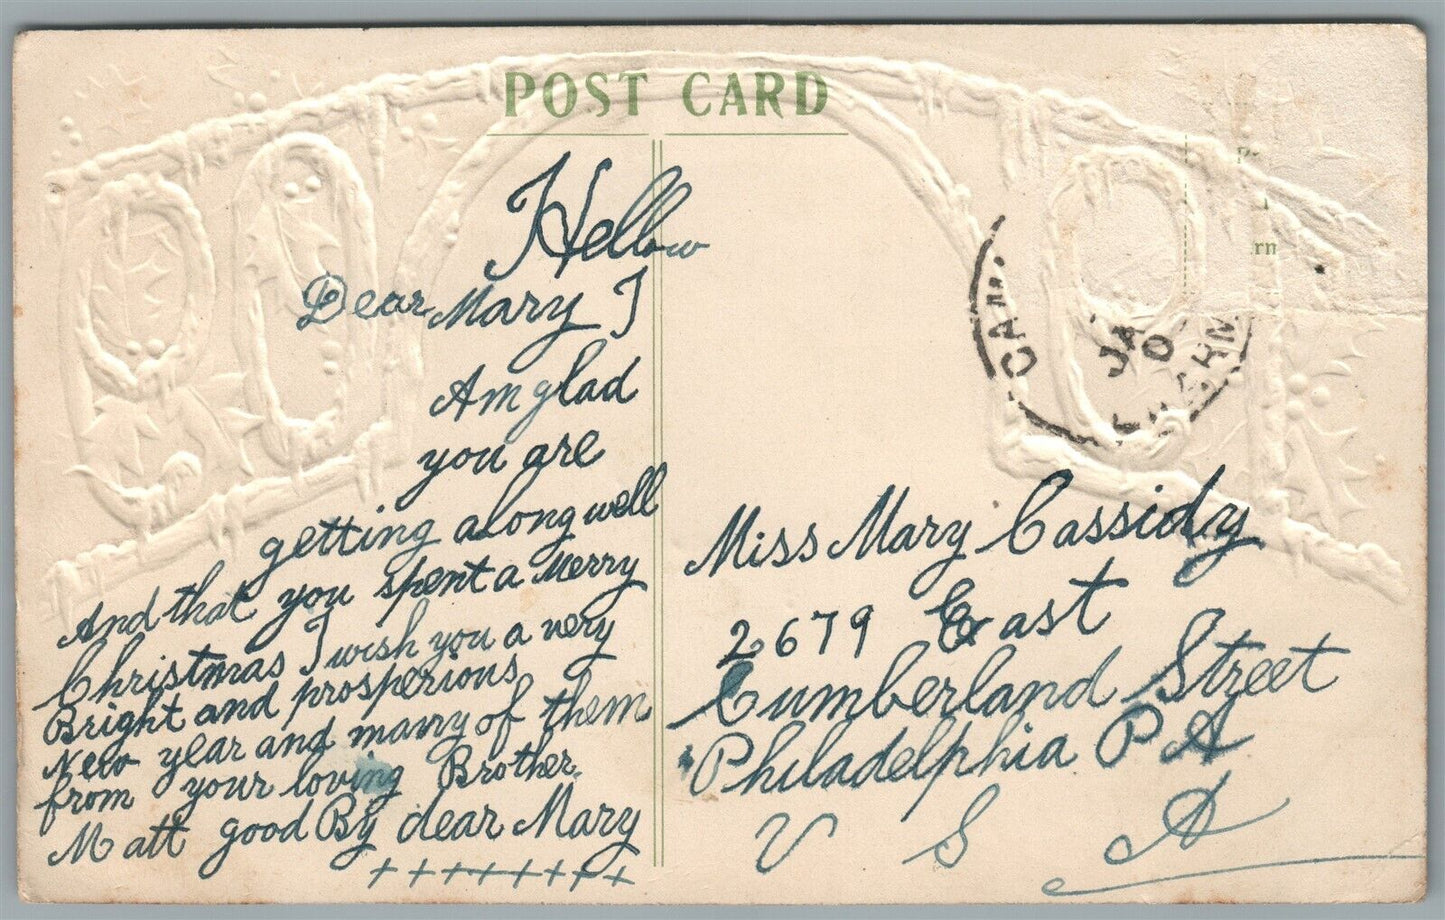 POST CARD
Hellow
Dear Mary I
Am glad
you are
getting along well
And that you spent a Merry
Christmas I wish you a very
Bright and prosperious
New year and many of them
from your loving Brother
Matt good By dear Mary
++++++++
rn
JA
0
Miss Mary Cassidy
2679 East
Cumberland Street
Philadelphia PA
U S A